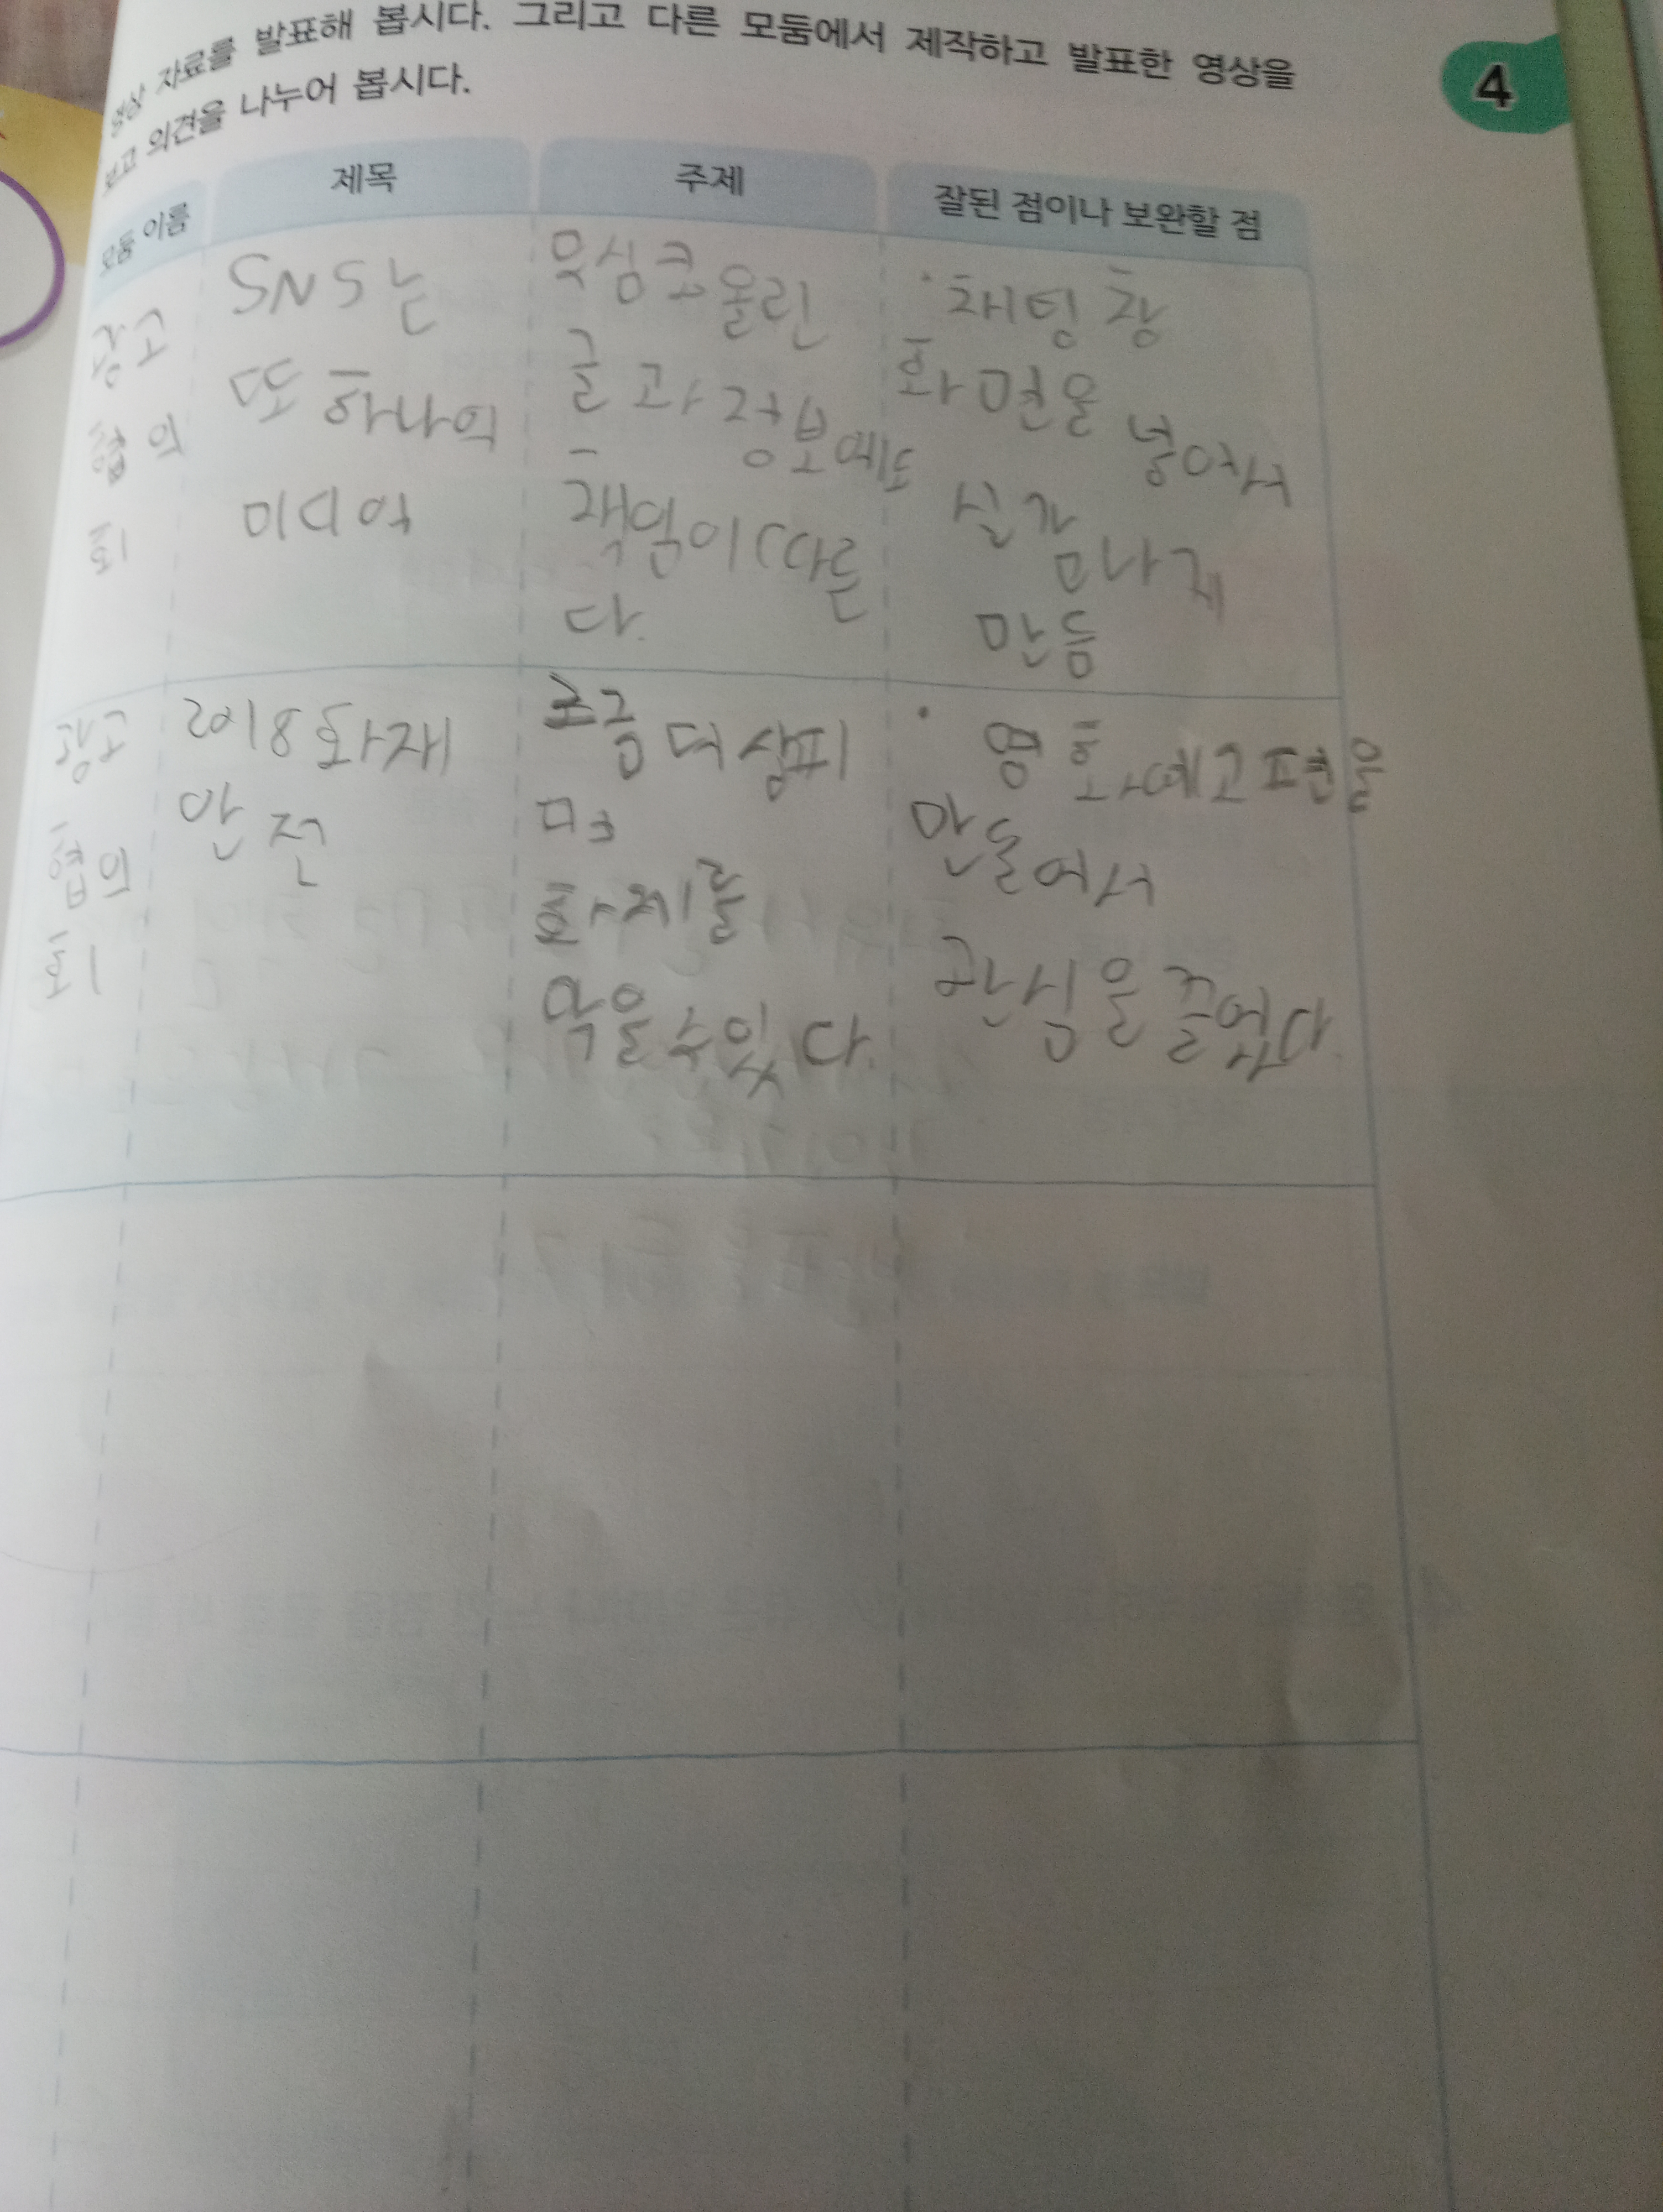 영상 자료를 발표해 봅시다. 그리고 다른 모둠에서 제작하고 발표한 영상을
보고 의견을 나누어 봅시다.
4
모둠 이름
제목
주제
잘된 점이나 보완할 점
광고
협의
회
SNS는
또 하나의
미디어
무심코 올린
글과 정보에도
책임이 따른
다.
· 채팅 창
화면을 넣어서
실감나게
만듬
광고
협의
회
2018 화재
안전
조금 더 살피
면
화제를
막을 수 있다.
· 영화예고편을
만들어서
관심을 끌었다.